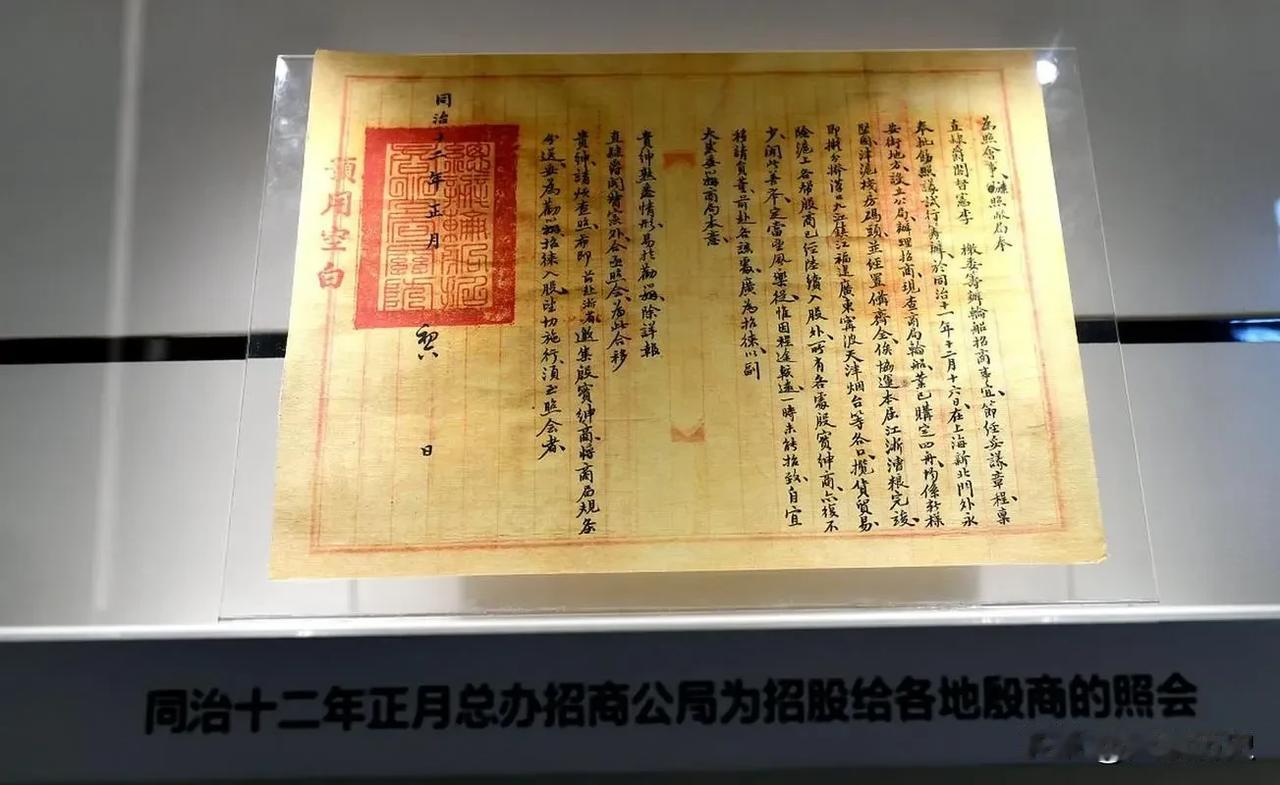 為照會事、照得敝局奉
直隸爵閣督憲李 檄委籌辦輪船招商事宜、節經妥議章程、稟
奉批飭照議試行等辦、於同治十一年十二月十六日、在上海新北門外永
安街地方、設立公局、辦理招商、現查商局輪船、業已購定四舟、均係新樣
堅固、津滬棧房碼頭、並經置備齊全、俟協運本屆江浙漕粮完竣、
即擬分撥滬口九江鎮江福建廣東寧波天津烟台等各口、攬貨貿易
除滬上各幫股商、已經陸續入股外、所有各處殷實紳商、亦復不
少、聞此善舉、定當望風樂從、惟因程途較遠、一時未能招致、自宜
移請貴董、前赴各該處、廣為招徠、以副
大憲委辦商局本意、
貴紳熟悉情形、易於勸辦、除詳報
直隸爵閣督憲外、合亟照會、為此合移
貴紳、請煩查照、希即前赴浙省、邀集殷實紳商、將商局規条
分送、妥為勸辦、招徠入股、望切施行、須至照会者、
同治十二年正月 日
預用空白
同治十二年正月总办招商公局为招股给各地殷商的照会